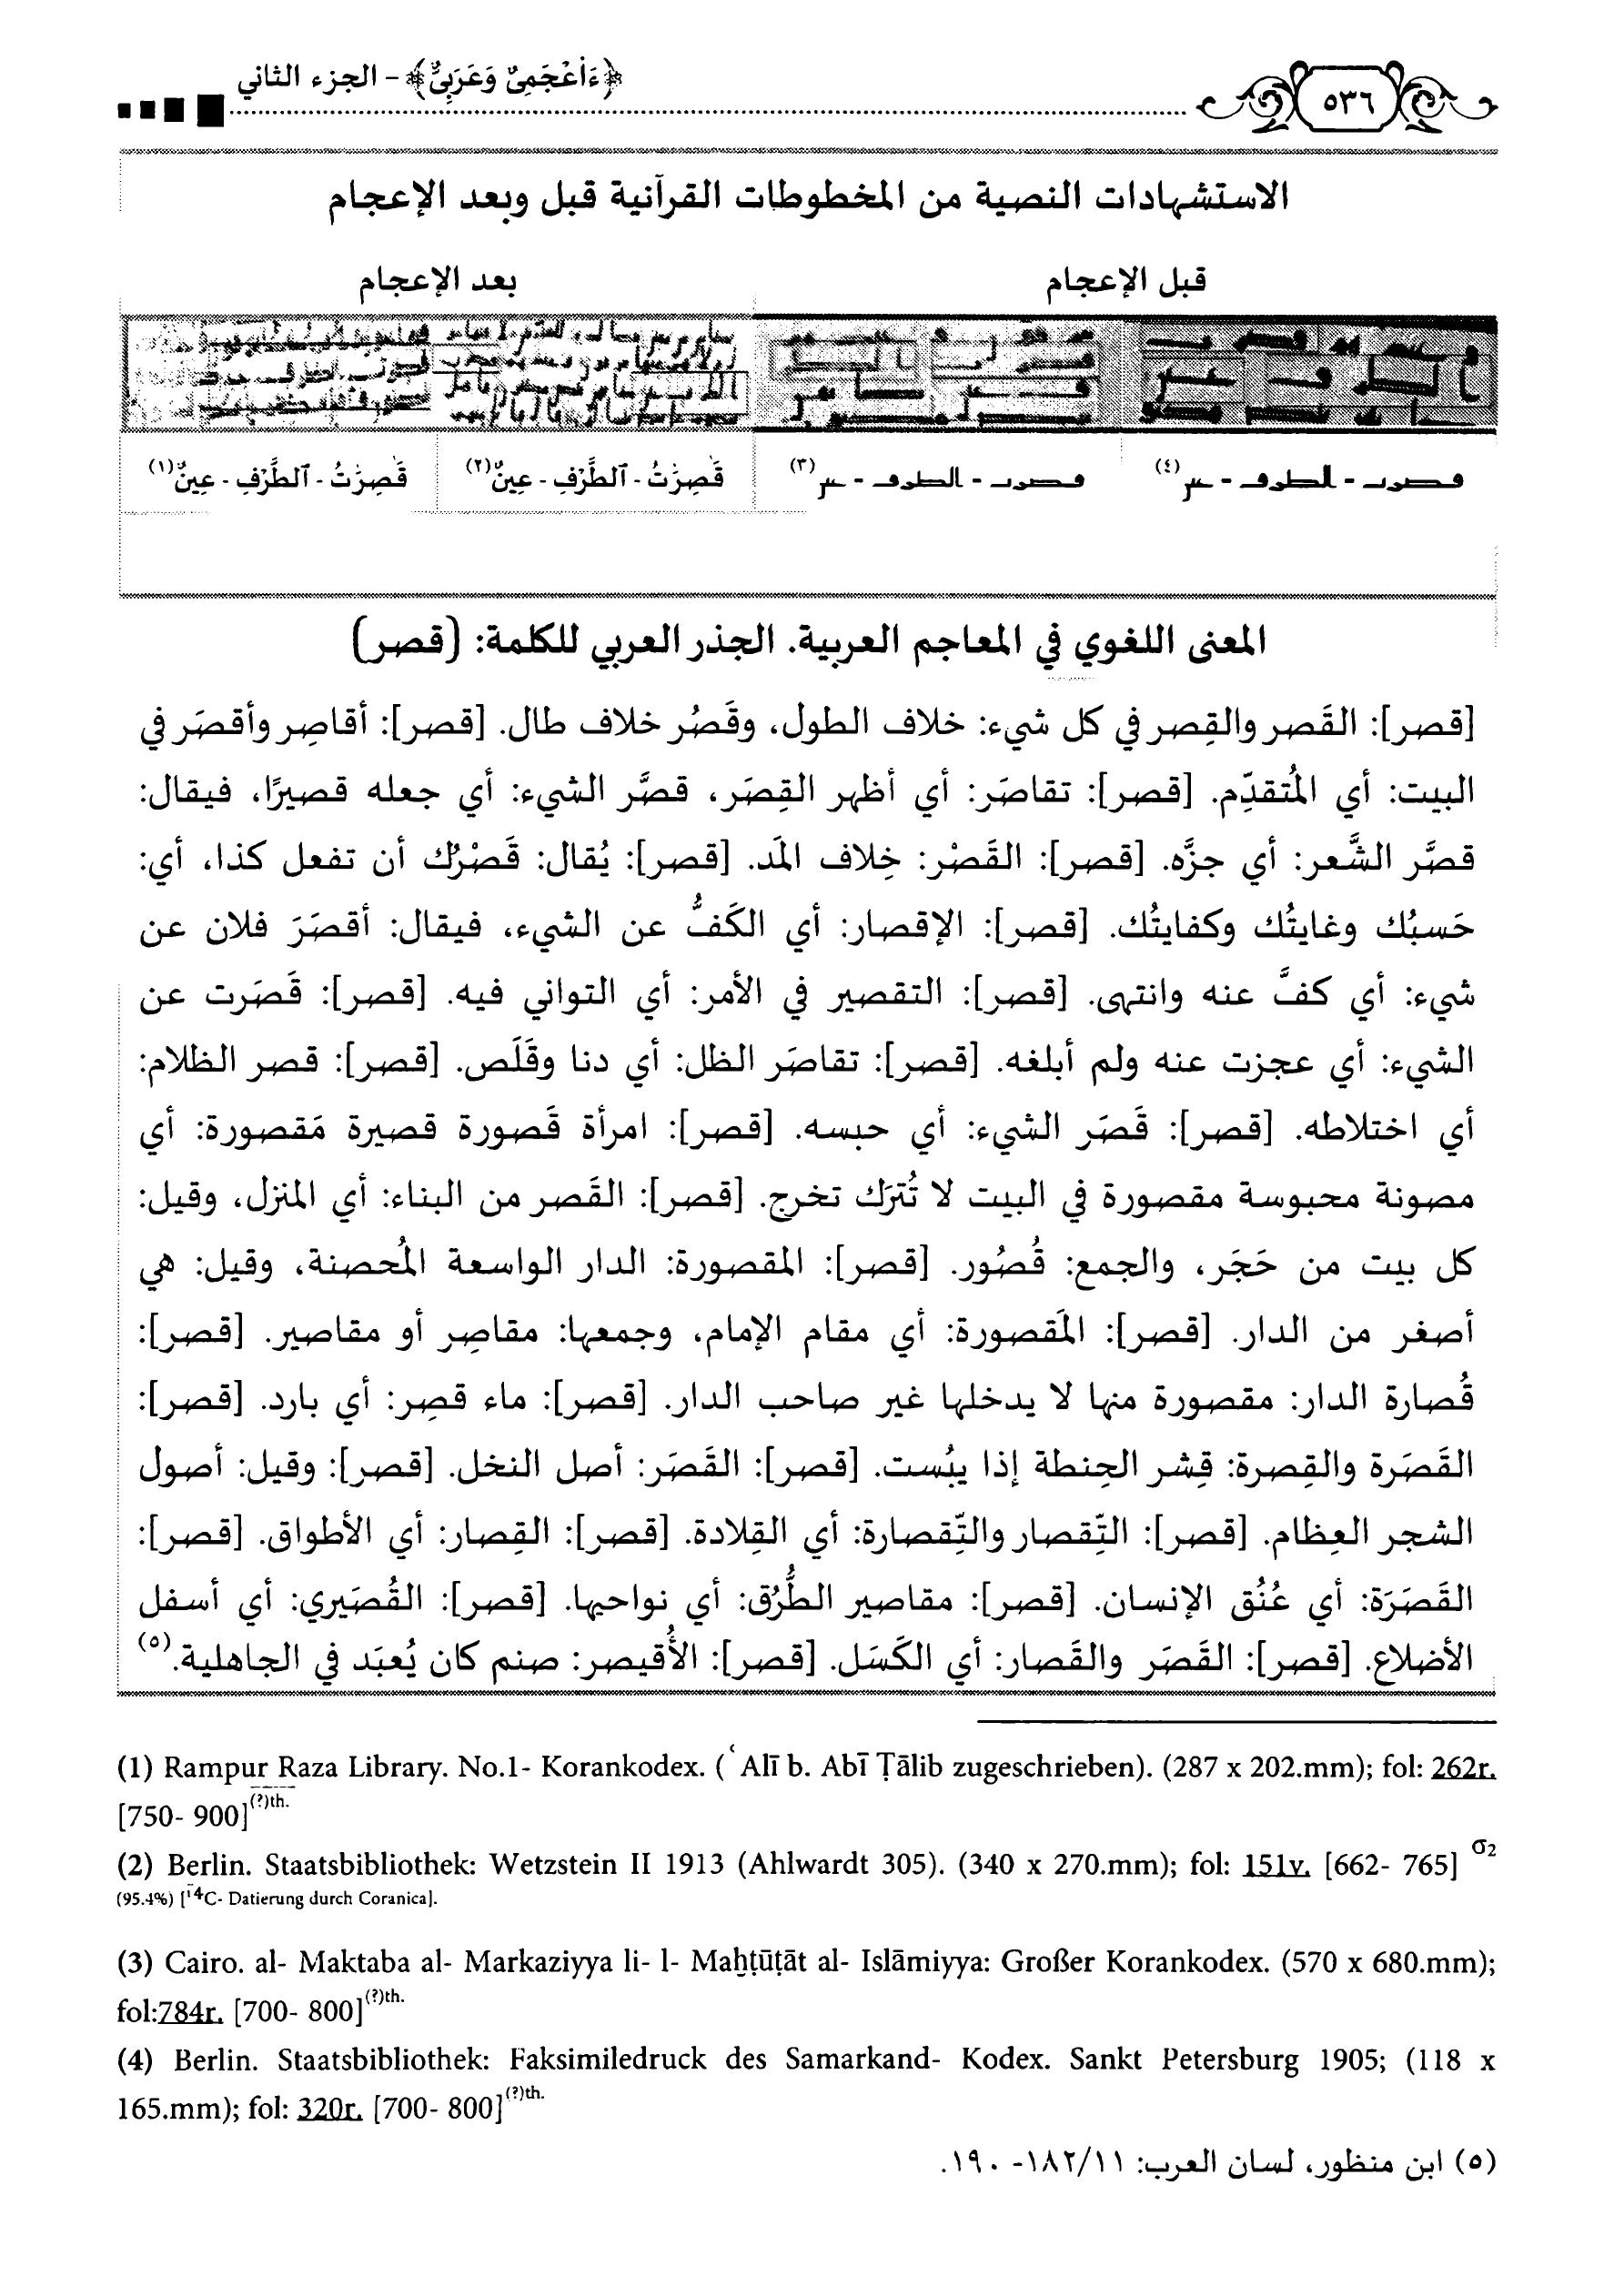 ﴿ءَاْعْجَمِىٌّ وَعَرَبِىٌّ﴾ - الجزء الثاني
٥٣٦
الاستشهادات النصية من المخطوطات القرآنية قبل وبعد الإعجام
قبل الإعجام
بعد الإعجام
قَٰصِرَٰتُ - ٱلطَّرْفِ - عِينٌ(٢)
قَٰصِرَٰتُ - ٱلطَّرْفِ - عِينٌ(١)
المعنى اللغوي في المعاجم العربية. الجذر العربي للكلمة: (قصر)
[قصر]: القَصر والقِصر في كل شيء: خلاف الطول، وقَصُر خلاف طال. [قصر]: أقاصِر وأقصَر في
البيت: أي المُتقدِّم. [قصر]: تقاصَر: أي أظهر القِصَر، قصَّر الشيء: أي جعله قصيرًا، فيقال:
قصَّر الشَّعر: أي جزَّه. [قصر]: القَصْر: خِلاف المَد. [قصر]: يُقال: قَصْرُك أن تفعل كذا، أي:
حَسبُك وغايتُك وكفايتُك. [قصر]: الإقصار: أي الكَفُّ عن الشيء، فيقال: أقصَرَ فلان عن
شيء: أي كفَّ عنه وانتهى. [قصر]: التقصير في الأمر: أي التواني فيه. [قصر]: قَصَرت عن
الشيء: أي عجزت عنه ولم أبلغه. [قصر]: تقاصَر الظل: أي دنا وقَلَص. [قصر]: قصر الظلام:
أي اختلاطه. [قصر]: قَصَر الشيء: أي حبسه. [قصر]: امرأة قَصورة قصيرة مَقصورة: أي
مصونة محبوسة مقصورة في البيت لا تُترَك تخرج. [قصر]: القَصر من البناء: أي المنزل، وقيل:
كل بيت من حَجَر، والجمع: قُصُور. [قصر]: المقصورة: الدار الواسعة المُحصنة، وقيل: هي
أصغر من الدار. [قصر]: المَقصورة: أي مقام الإمام، وجمعها: مقاصِر أو مقاصير. [قصر]:
قُصارة الدار: مقصورة منها لا يدخلها غير صاحب الدار. [قصر]: ماء قصِر: أي بارد. [قصر]:
القَصَرة والقِصرة: قِشر الحِنطة إذا يبُست. [قصر]: القَصَر: أصل النخل. [قصر]: وقيل: أصول
الشجر العِظام. [قصر]: التِّقصار والتِّقصارة: أي القِلادة. [قصر]: القِصار: أي الأطواق. [قصر]:
القَصَرَة: أي عُنُق الإنسان. [قصر]: مقاصير الطُّرُق: أي نواحيها. [قصر]: القُصَيري: أي أسفل
الأضلاع. [قصر]: القَصَر والقَصار: أي الكَسَل. [قصر]: الأُقيصر: صنم كان يُعبَد في الجاهلية.(٥)
(1) Rampur Raza Library. No.1- Korankodex. (ʿAlī b. Abī Ṭālib zugeschrieben). (287 x 202.mm); fol: 262r.
[750- 900](?)th.
(2) Berlin. Staatsbibliothek: Wetzstein II 1913 (Ahlwardt 305). (340 x 270.mm); fol: 151v. [662- 765] σ2
(95.4%) [14C- Datierung durch Coranica].
(3) Cairo. al- Maktaba al- Markaziyya li- l- Maḫṭūṭāt al- Islāmiyya: Großer Korankodex. (570 x 680.mm);
fol:784r. [700- 800](?)th.
(4) Berlin. Staatsbibliothek: Faksimiledruck des Samarkand- Kodex. Sankt Petersburg 1905; (118 x
165.mm); fol: 320r. [700- 800](?)th.
(٥) ابن منظور، لسان العرب: ١٨٢/١١- ١٩٠.